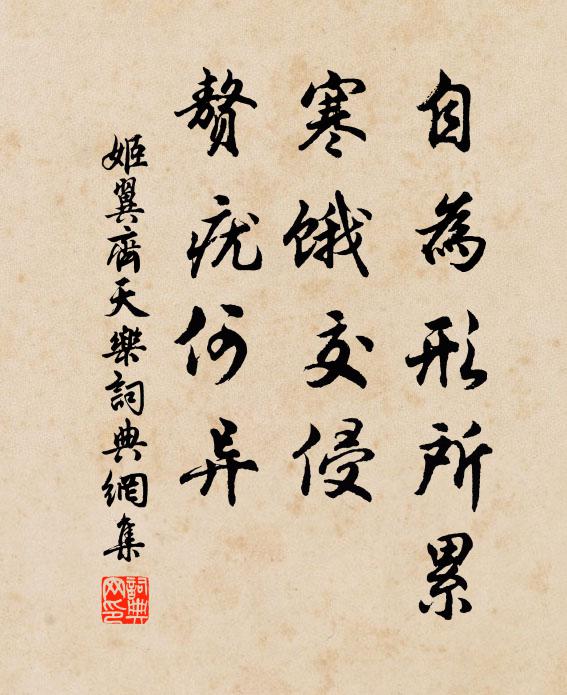 自為形所累
寒餓交侵
贅疣何异
姬翼齊天樂詞典網集
詞典網印